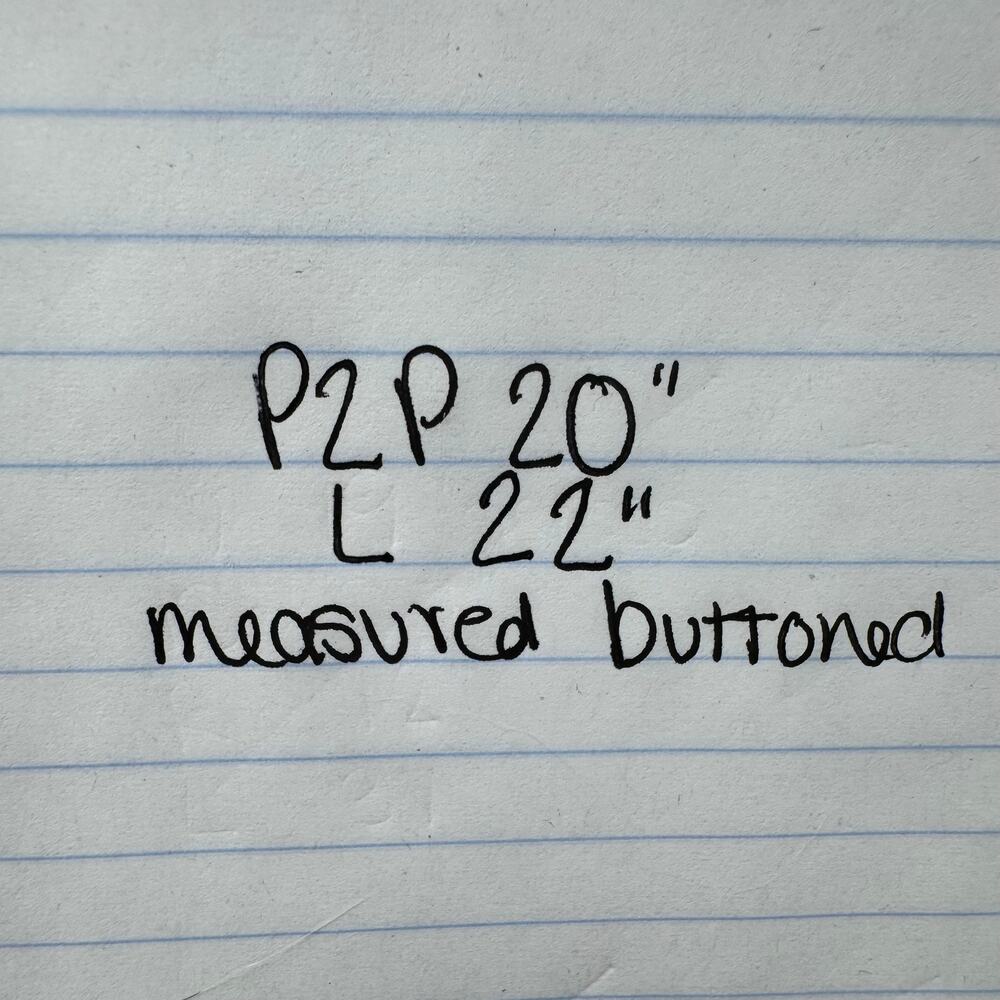 P2P 20"
L 22"
measured buttoned